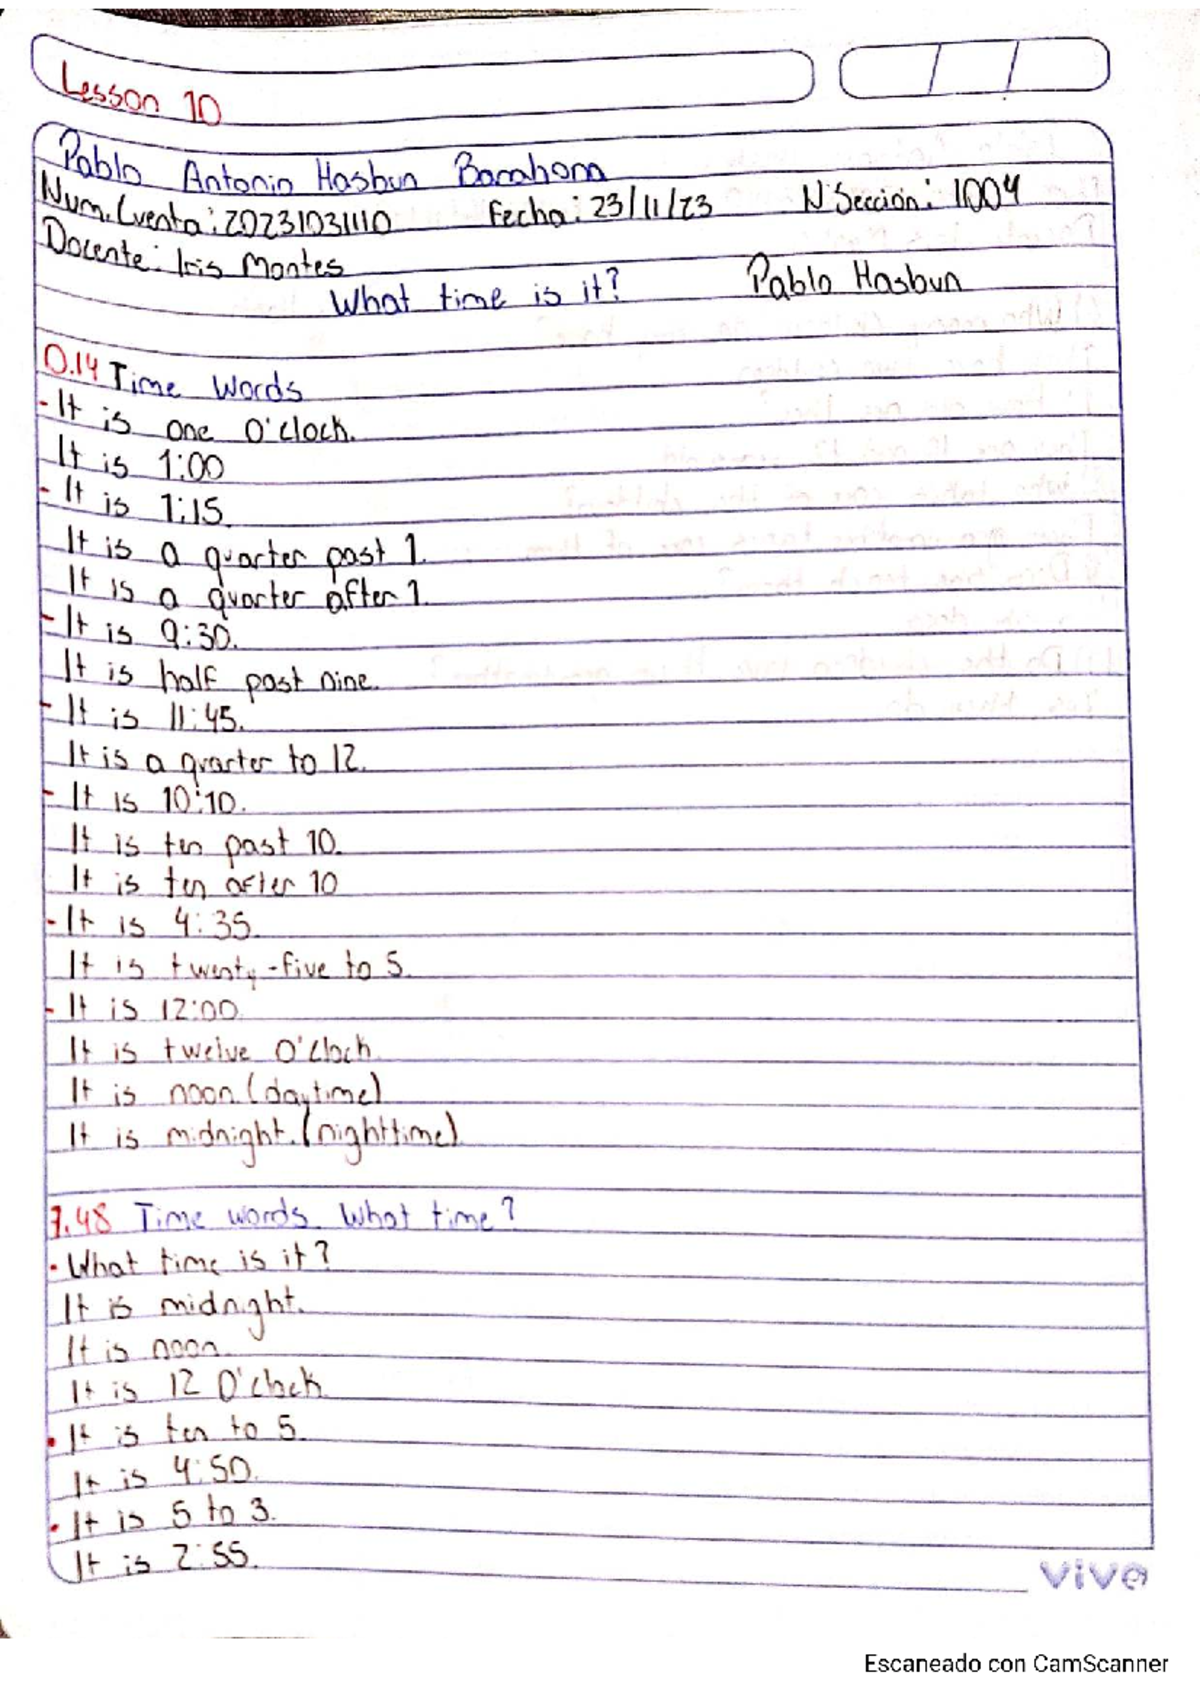 Lesson 10
Pablo Antonio Hasbun Barahona
Num. Cuenta: 20231031110 Fecha: 23/11/23 N° Sección: 1004
Docente: Iris Montes
What time is it? Pablo Hasbun
0.14 Time Words
- It is one O'clock.
It is 1:00
- It is 1:15.
It is a quarter past 1.
It is a quarter after 1.
- It is 9:30.
It is half past nine.
- It is 11:45.
It is a quarter to 12.
- It is 10:10.
It is ten past 10.
It is ten after 10
- It is 4:35.
It is twenty-five to 5.
- It is 12:00
It is twelve O'Clock
It is noon (daytime)
It is midnight. (nighttime)
7.48 Time words. What time?
• What time is it?
It is midnight.
It is noon.
It is 12 O'clock
• It is ten to 5.
It is 4:50.
• It is 5 to 3.
It is 2:55.
viva
Escaneado con CamScanner